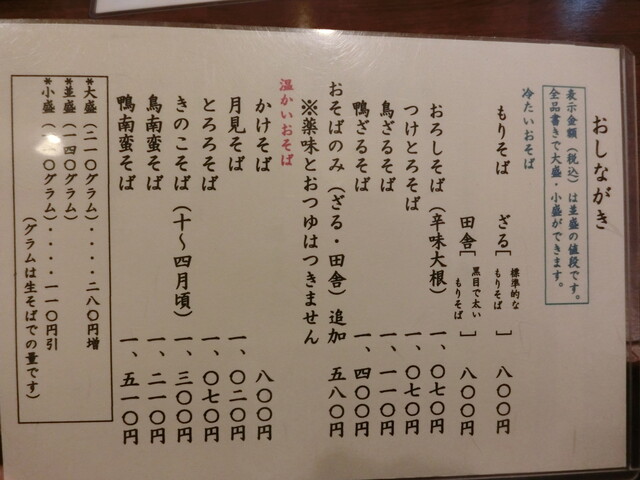 おしながき
表示金額（税込）は並盛の値段です。
全品書きで大盛・小盛ができます。
冷たいおそば
もりそば ざる［標準的なもりそば］ 八〇〇円
田舎［黒目で太いもりそば］ 八〇〇円
おろしそば（辛味大根） 一、〇七〇円
つけとろそば 一、〇七〇円
鳥ざるそば 一、一一〇円
鴨ざるそば 一、四〇〇円
おそばのみ（ざる・田舎）追加 五八〇円
※薬味とおつゆはつきません
温かいおそば
かけそば 八〇〇円
月見そば 一、〇二〇円
とろろそば 一、〇七〇円
きのこそば（十〜四月頃） 一、三〇〇円
鳥南蛮そば 一、二一〇円
鴨南蛮そば 一、五一〇円
*大盛（二一〇グラム）・・・・二八〇円増
*並盛（一四〇グラム）
*小盛（七〇グラム）・・・・一一〇円引
（グラムは生そばでの量です）